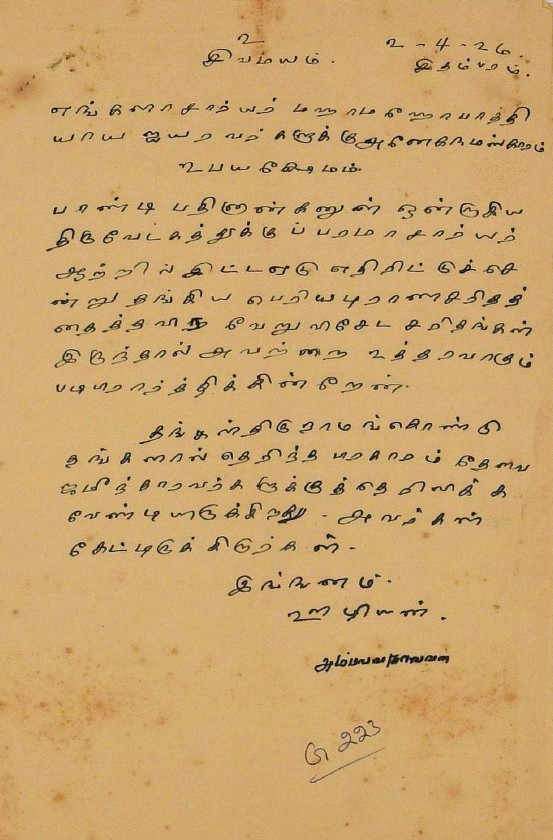 உ
சிவமயம்.
உ - 4 - 26.
சிதம்பரம்.
எங்களாசார்யர் மஹாமஹோபாத்தி
யாய ஐயரவர்களுக்கு அனேகநமஸ்காரம்
உபயக்ஷேமம்.
பாண்டி பதினான்கனுள் ஒன்றாகிய
திருவேடகத்துக்குப் பரமாசார்யர்
ஆற்றில் இட்டஏடு எதிரிட்டுச்செ
ன்று தங்கிய பெரியபுராணசரிதத்
தைத்தவிர வேறு விசேட சரிதங்கள்
இருந்தால் அவற்றை உத்தரவாகும்
படிபிரார்த்திக்கின்றேன்.
தங்கள்திருநாமங்கொண்டு
தங்களால் தெரிந்த பிரகாரம்
ஜமீந்தாரவர்களுக்குத்தெரிவிக்க
வேண்டியிருக்கிறது. அவர்கள்
கேட்டிருக்கிறார்கள்.
இங்ஙனம்.
ஊழியன்.
அம்பலவாணநாவலன்
G 223